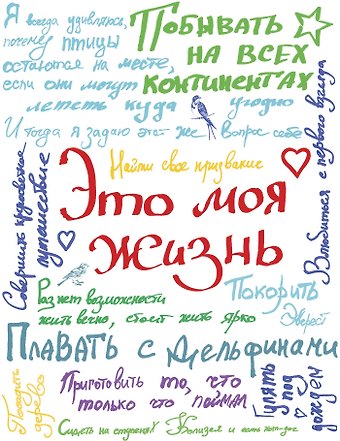 Я всегда удивляюсь,
почему птицы
остаются на месте,
если они могут
лететь куда угодно
И тогда я задаю этот же вопрос себе
Побывать
на всех
континентах
Найти свое призвание
Совершить кругосветное
путешествие
Влюбиться с первого взгляда
Это моя
жизнь
Раз нет возможности
жить вечно, стоит жить ярко
Покорить
Эверест
Плавать с дельфинами
Посадить
дерево
Приготовить то, что
только что поймал
Гулять
под
дождем
Сидеть на ступенях Колизея и есть хот-дог